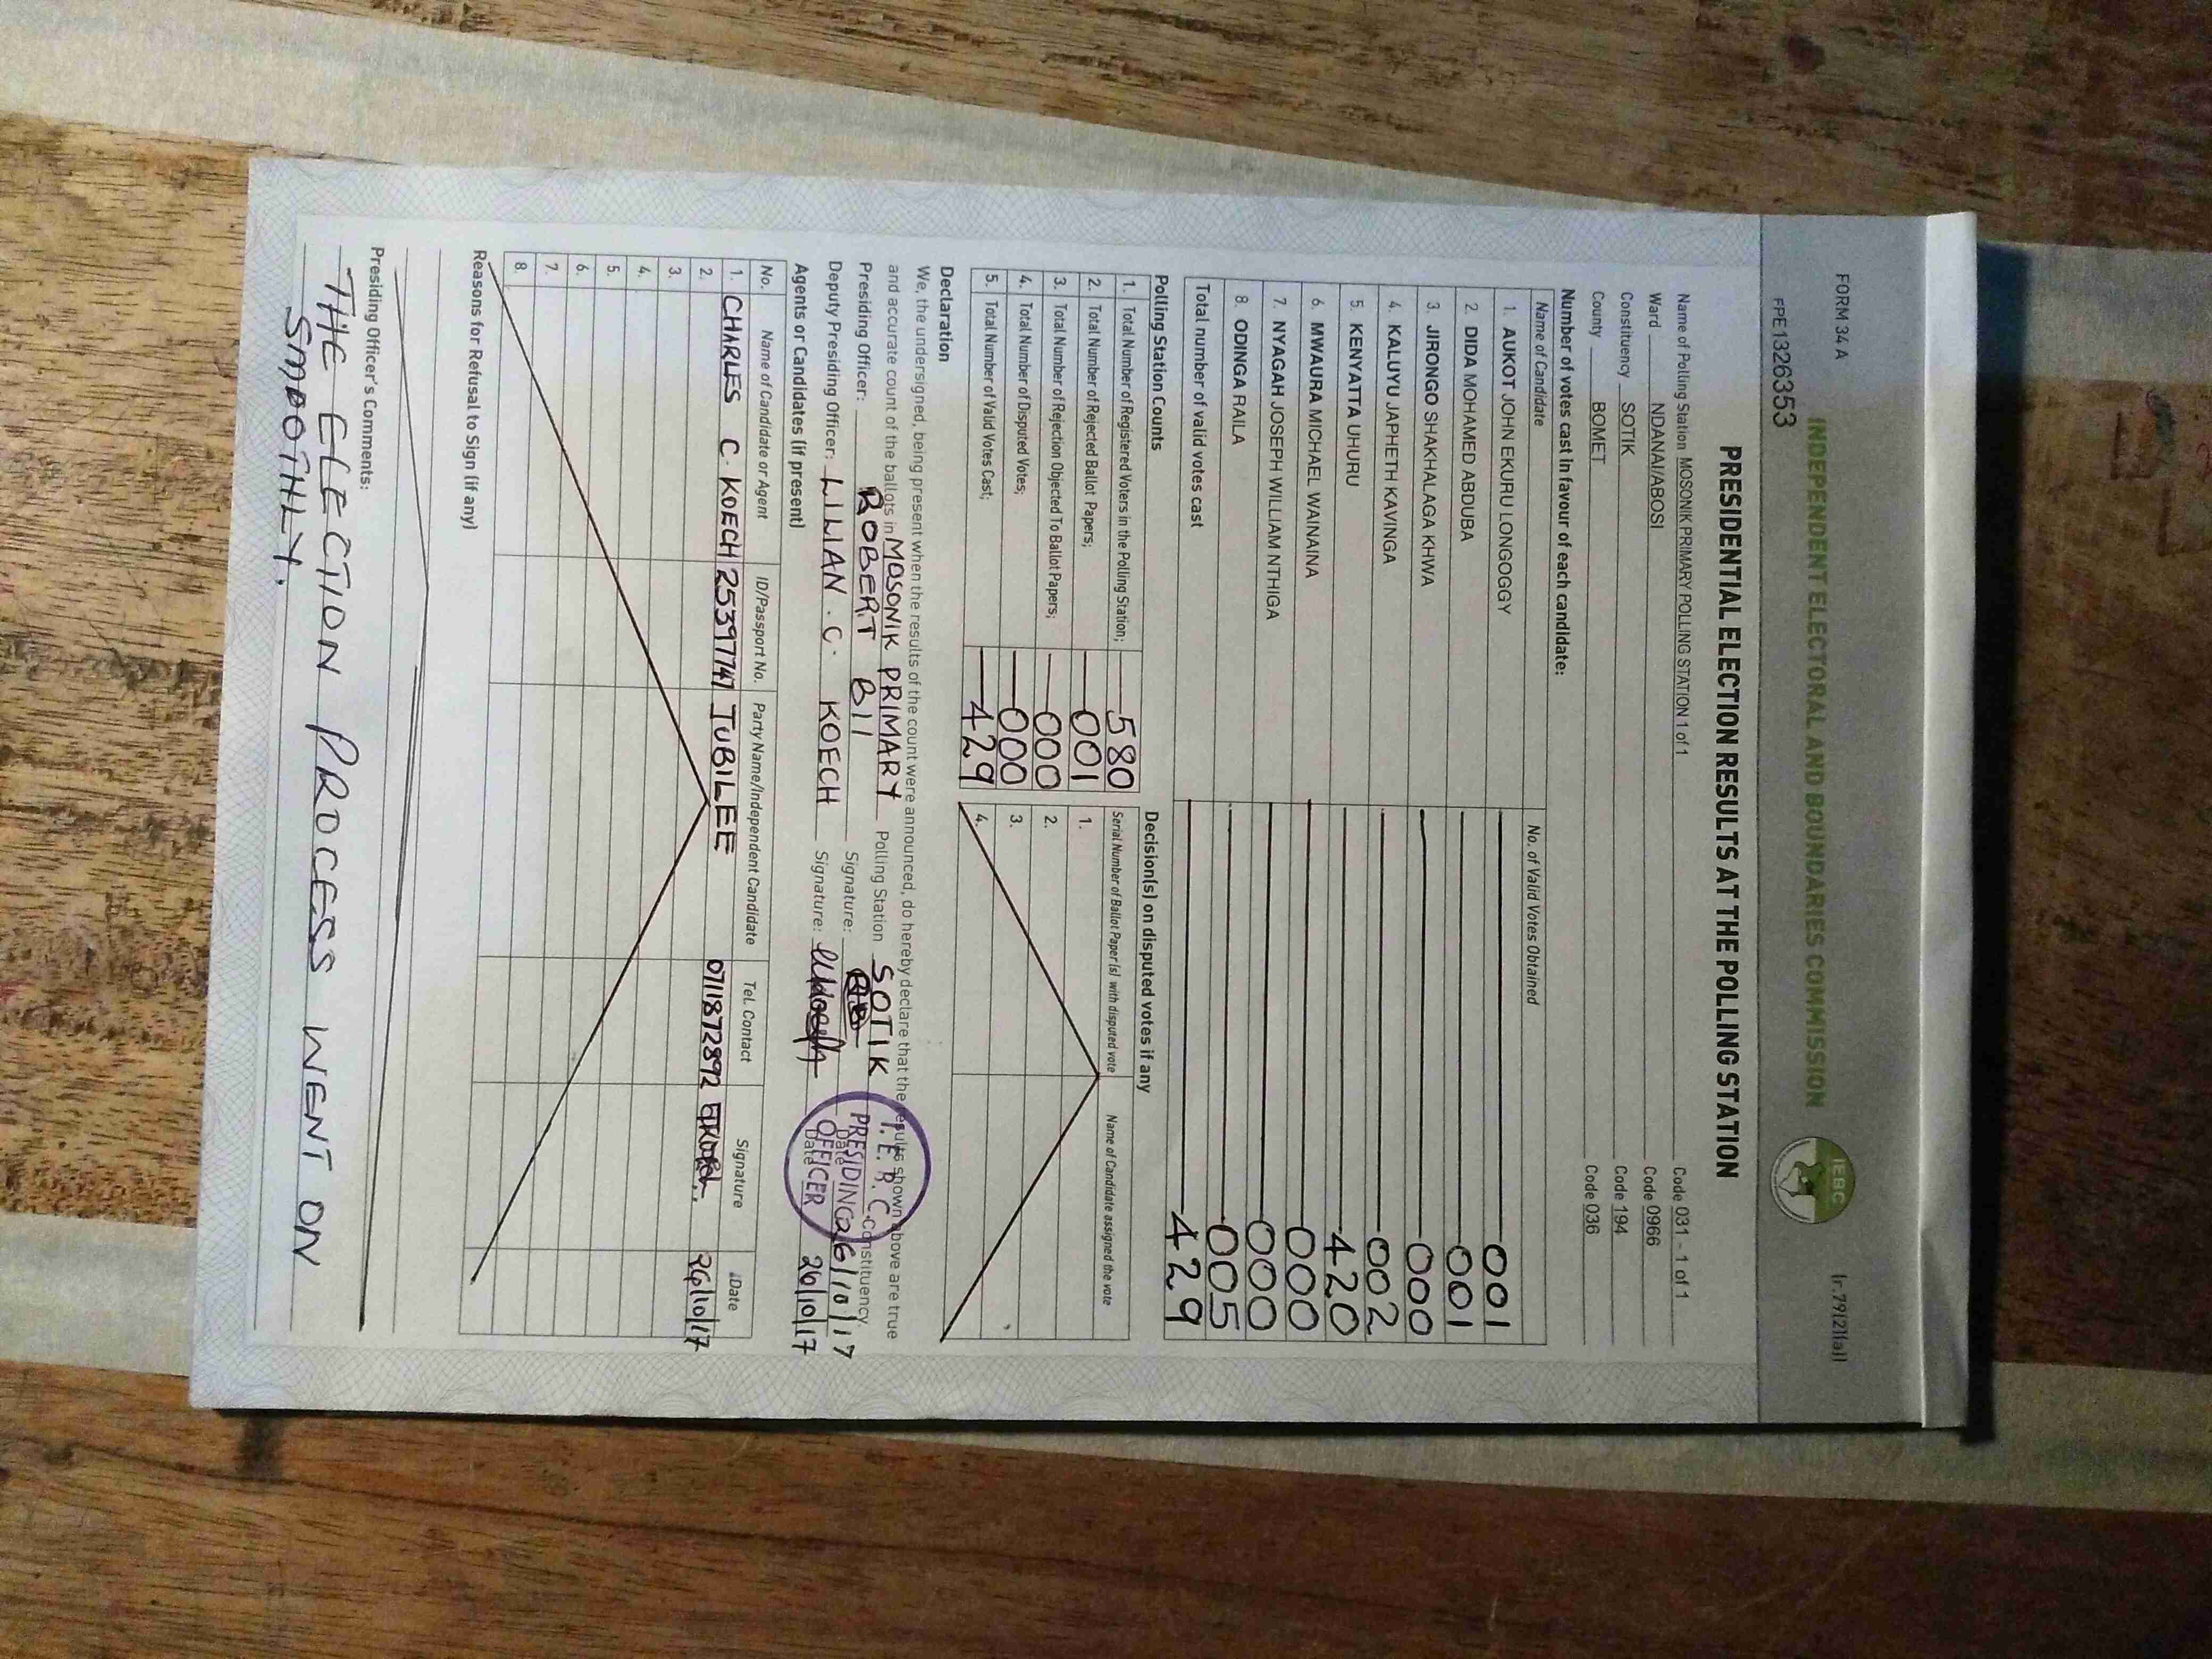 FORM 34 A
(r.79(2)(a))
INDEPENDENT ELECTORAL AND BOUNDARIES COMMISSION
IEBC
FPE1326353
PRESIDENTIAL ELECTION RESULTS AT THE POLLING STATION
Name of Polling Station MOSONIK PRIMARY POLLING STATION 1 of 1 Code 031 - 1 of 1
Ward NDANAI/ABOSI Code 0966
Constituency SOTIK Code 194
County BOMET Code 036
Number of votes cast in favour of each candidate:
Name of Candidate No. of Valid Votes Obtained
1. AUKOT JOHN EKURU LONGOGGY 001
2. DIDA MOHAMED ABDUBA 001
3. JIRONGO SHAKHALAGA KHWA 000
4. KALUYU JAPHETH KAVINGA 002
5. KENYATTA UHURU 420
6. MWAURA MICHAEL WAINAINA 000
7. NYAGAH JOSEPH WILLIAM NTHIGA 000
8. ODINGA RAILA 005
Total number of valid votes cast 429
Polling Station Counts Decision(s) on disputed votes if any
1. Total Number of Registered Voters in the Polling Station; 580 Serial Number of Ballot Paper (s) with disputed vote Name of Candidate assigned the vote
2. Total Number of Rejected Ballot Papers; 001 1.
3. Total Number of Rejection Objected To Ballot Papers; 000 2.
4. Total Number of Disputed Votes; 000 3.
5. Total Number of Valid Votes Cast; 429 4.
Declaration
We, the undersigned, being present when the results of the count were announced, do hereby declare that the results shown above are true
and accurate count of the ballots in MOSONIK PRIMARY Polling Station SOTIK Constituency.
Presiding Officer: ROBERT BII Signature: Date 26/10/17
Deputy Presiding Officer: LILIAN . C . KOECH Signature: Date 26/10/17
I.E.B.C.
PRESIDING
OFFICER
Agents or Candidates (if present)
No. Name of Candidate or Agent ID/Passport No. Party Name/Independent Candidate Tel. Contact Signature Date
1. CHARLES C. KOECH 25397747 JUBILEE 0711872892 26/10/17
2.
3.
4.
5.
6.
7.
8.
Reasons for Refusal to Sign (if any)
Presiding Officer's Comments:
THE ELECTION PROCESS WENT ON
SMOOTHLY.